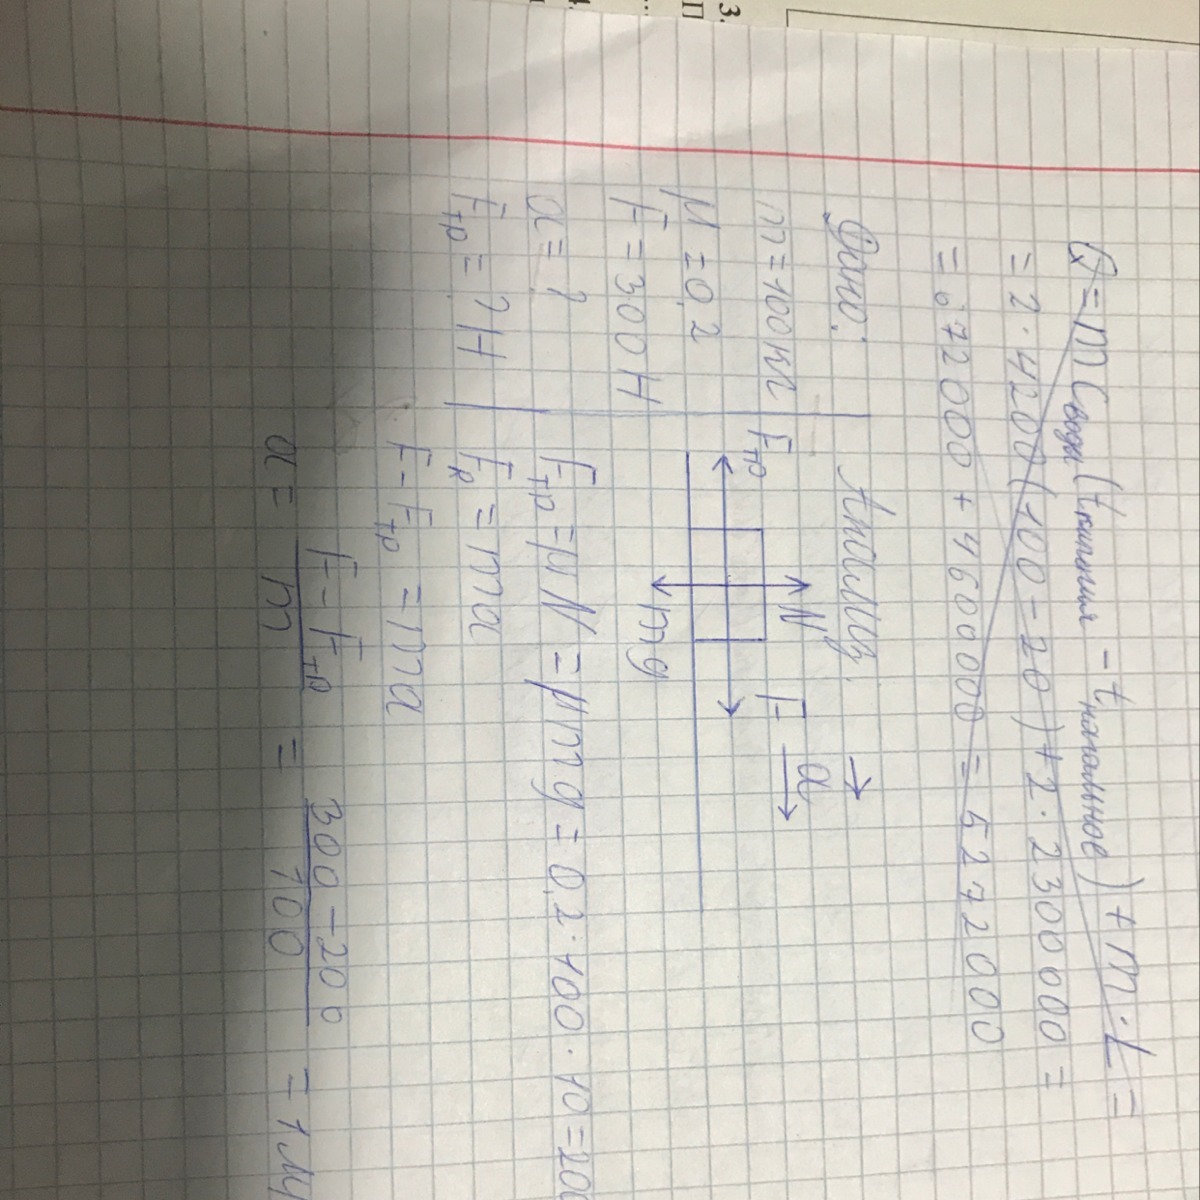 Q = m Cводы (tкипения - tначальное) + m · L =
= 2 · 4200 (100 - 20) + 2 · 2300 000 =
= 672000 + 4600 000 = 5272000
Дано:
m = 100 кг
μ = 0,2
F = 300 Н
a = ?
Fтр = ? Н
Анализ.
N
Fтр
F
a
mg
Fтр = μ N = μ m g = 0,2 · 100 · 10 = 200
FR = ma
F - Fтр = ma
a = F - Fтр / m = 300 - 200 / 100 = 1 м/
3.
П